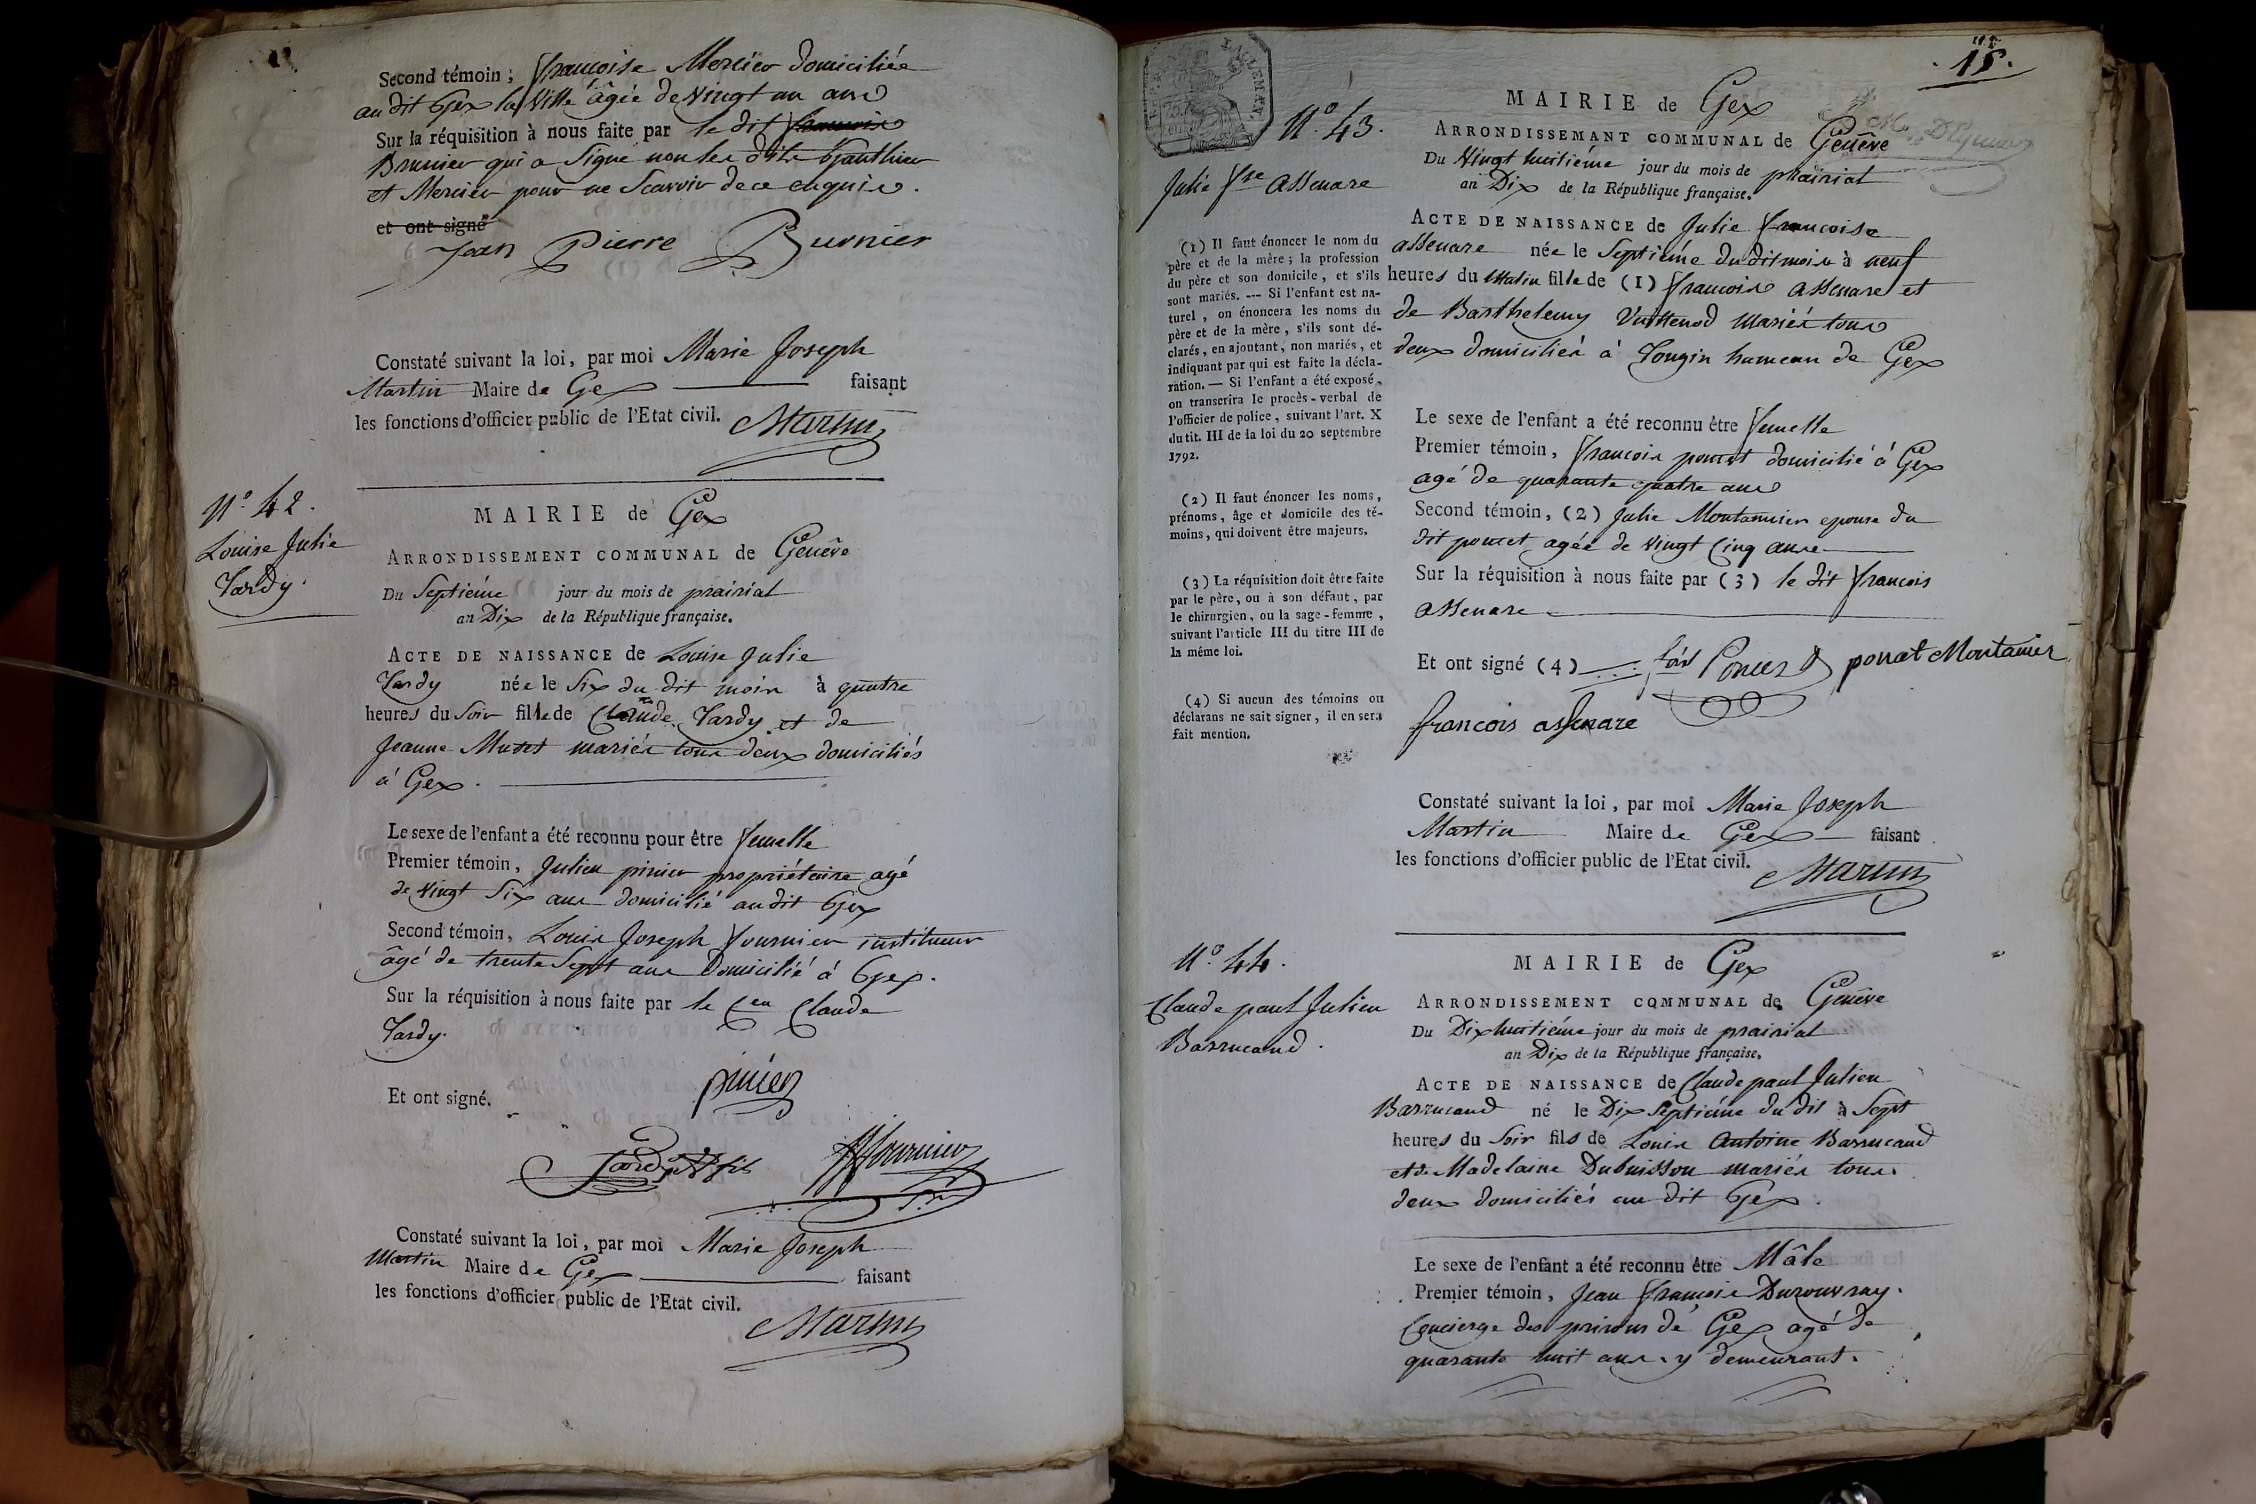 Second témoin ; françoise Mercier domiciliée
au dit Gex la Ville âgée de Vingt un ans
Sur la réquisition à nous faite par le dit francois
Brunier qui a Signé non les dits Gauthier
et Mercier pour ne Scavoir de ce enquis.
et ont signé
Jean Pierre Burnier
Constaté suivant la loi, par moi Marie Joseph
Martin Maire de Gex faisant
les fonctions d'officier public de l'Etat civil. Martin
N.º 42.
Louise Julie
Tardy.
MAIRIE de Gex
ARRONDISSEMENT COMMUNAL de Genêve
Du Septiéme jour du mois de prairial
an Dix de la République française.
ACTE DE NAISSANCE de Louise Julie
Tardy née le Six du dit mois à quatre
heures du Soir fille de Claude Tardy et de
Jeanne Mutet mariés tous deux domiciliés
à Gex.
Le sexe de l'enfant a été reconnu pour être femelle
Premier témoin, Julien pinier propriétaire agé
de Vingt Six ans domicilié audit Gex
Second témoin, Louis Joseph fournier instituteur
âgé de trente Sept ans Domicilié à Gex.
Sur la réquisition à nous faite par le Cen Claude
Tardy.
Et ont signé. pinier
Tardy fils fournier
Constaté suivant la loi, par moi Marie Joseph
Martin Maire de Gex faisant
les fonctions d'officier public de l'Etat civil.
Martin
15.
N.º 43.
Julie fse assenare
MAIRIE de Gex
ARRONDISSEMANT COMMUNAL de Genêve
Du Vingt huitiéme jour du mois de prairial
an Dix de la République française.
ACTE DE NAISSANCE de Julie francoise
assenare née le Septiéme du dit mois à neuf
heures du Matin fille de (1) francois assenare et
de Barthelemy Vuittenod mariés tous
deux domiciliés à Tougin hameau de Gex
(1) Il faut énoncer le nom du
père et de la mère ; la profession
du père et son domicile, et s'ils
sont mariés. --- Si l'enfant est na-
turel, on énoncera les noms du
père et de la mère, s'ils sont dé-
clarés, en ajoutant, non mariés, et
indiquant par qui est faite la décla-
ration. — Si l'enfant a été exposé,
on transcrira le procès-verbal de
l'officier de police, suivant l'art. X
du tit. III de la loi du 20 septembre
1792.
(2) Il faut énoncer les noms,
prénoms, âge et domicile des té-
moins, qui doivent être majeurs.
(3) La réquisition doit être faite
par le père, ou à son défaut, par
le chirurgien, ou la sage-femme,
suivant l'article III du titre III de
la même loi.
(4) Si aucun des témoins ou
déclarans ne sait signer, il en sera
fait mention.
Le sexe de l'enfant a été reconnu être femelle
Premier témoin, francois poncet domicilié à Gex
agé de quarante quatre ans
Second témoin, (2) Julie Montanier epouse du
dit poncet agée de Vingt Cinq ans
Sur la réquisition à nous faite par (3) le dit francois
assenare
Et ont signé (4) fois Poncet poncet Montanier
francois assenare
Constaté suivant la loi, par moi Marie Joseph
Martin Maire de Gex faisant
les fonctions d'officier public de l'Etat civil.
Martin
N.º 44.
Claude paul Julien
Barrucand.
MAIRIE de Gex
ARRONDISSEMENT COMMUNAL de Genêve
Du Dix huitiéme jour du mois de prairial
an Dix de la République française.
ACTE DE NAISSANCE de Claude paul Julien
Barrucand né le Dix Septiéme du dit à Sept
heures du Soir fils de Louis Antoine Barrucand
et de Madelaine Dubuisson mariés tous
deux domiciliés au dit Gex.
Le sexe de l'enfant a été reconnu être Mâle
Premier témoin, Jean François Durouvray.
Concierge des prisons de Gex agé de
quarante huit ans y demeurant.